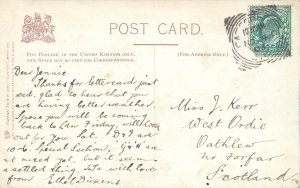 POST CARD.
FOR POSTAGE IN THE UNITED KINGDOM ONLY,
THIS SPACE MAY BE USED FOR CORRESPONDENCE.
(FOR ADDRESS ONLY.)
Dear Jennie
Thanks for lettercard just
recd. glad to hear that you
are having better weather
Spose you will be coming
back to Friday, will look
out for you Sat.
10-6. Special Section,
not mixed yet, but it seems
a settled thing. with love
from Ethel Dickens
Miss J. Kerr
West Ordie
Oathlew
nr Forfar
Scotland